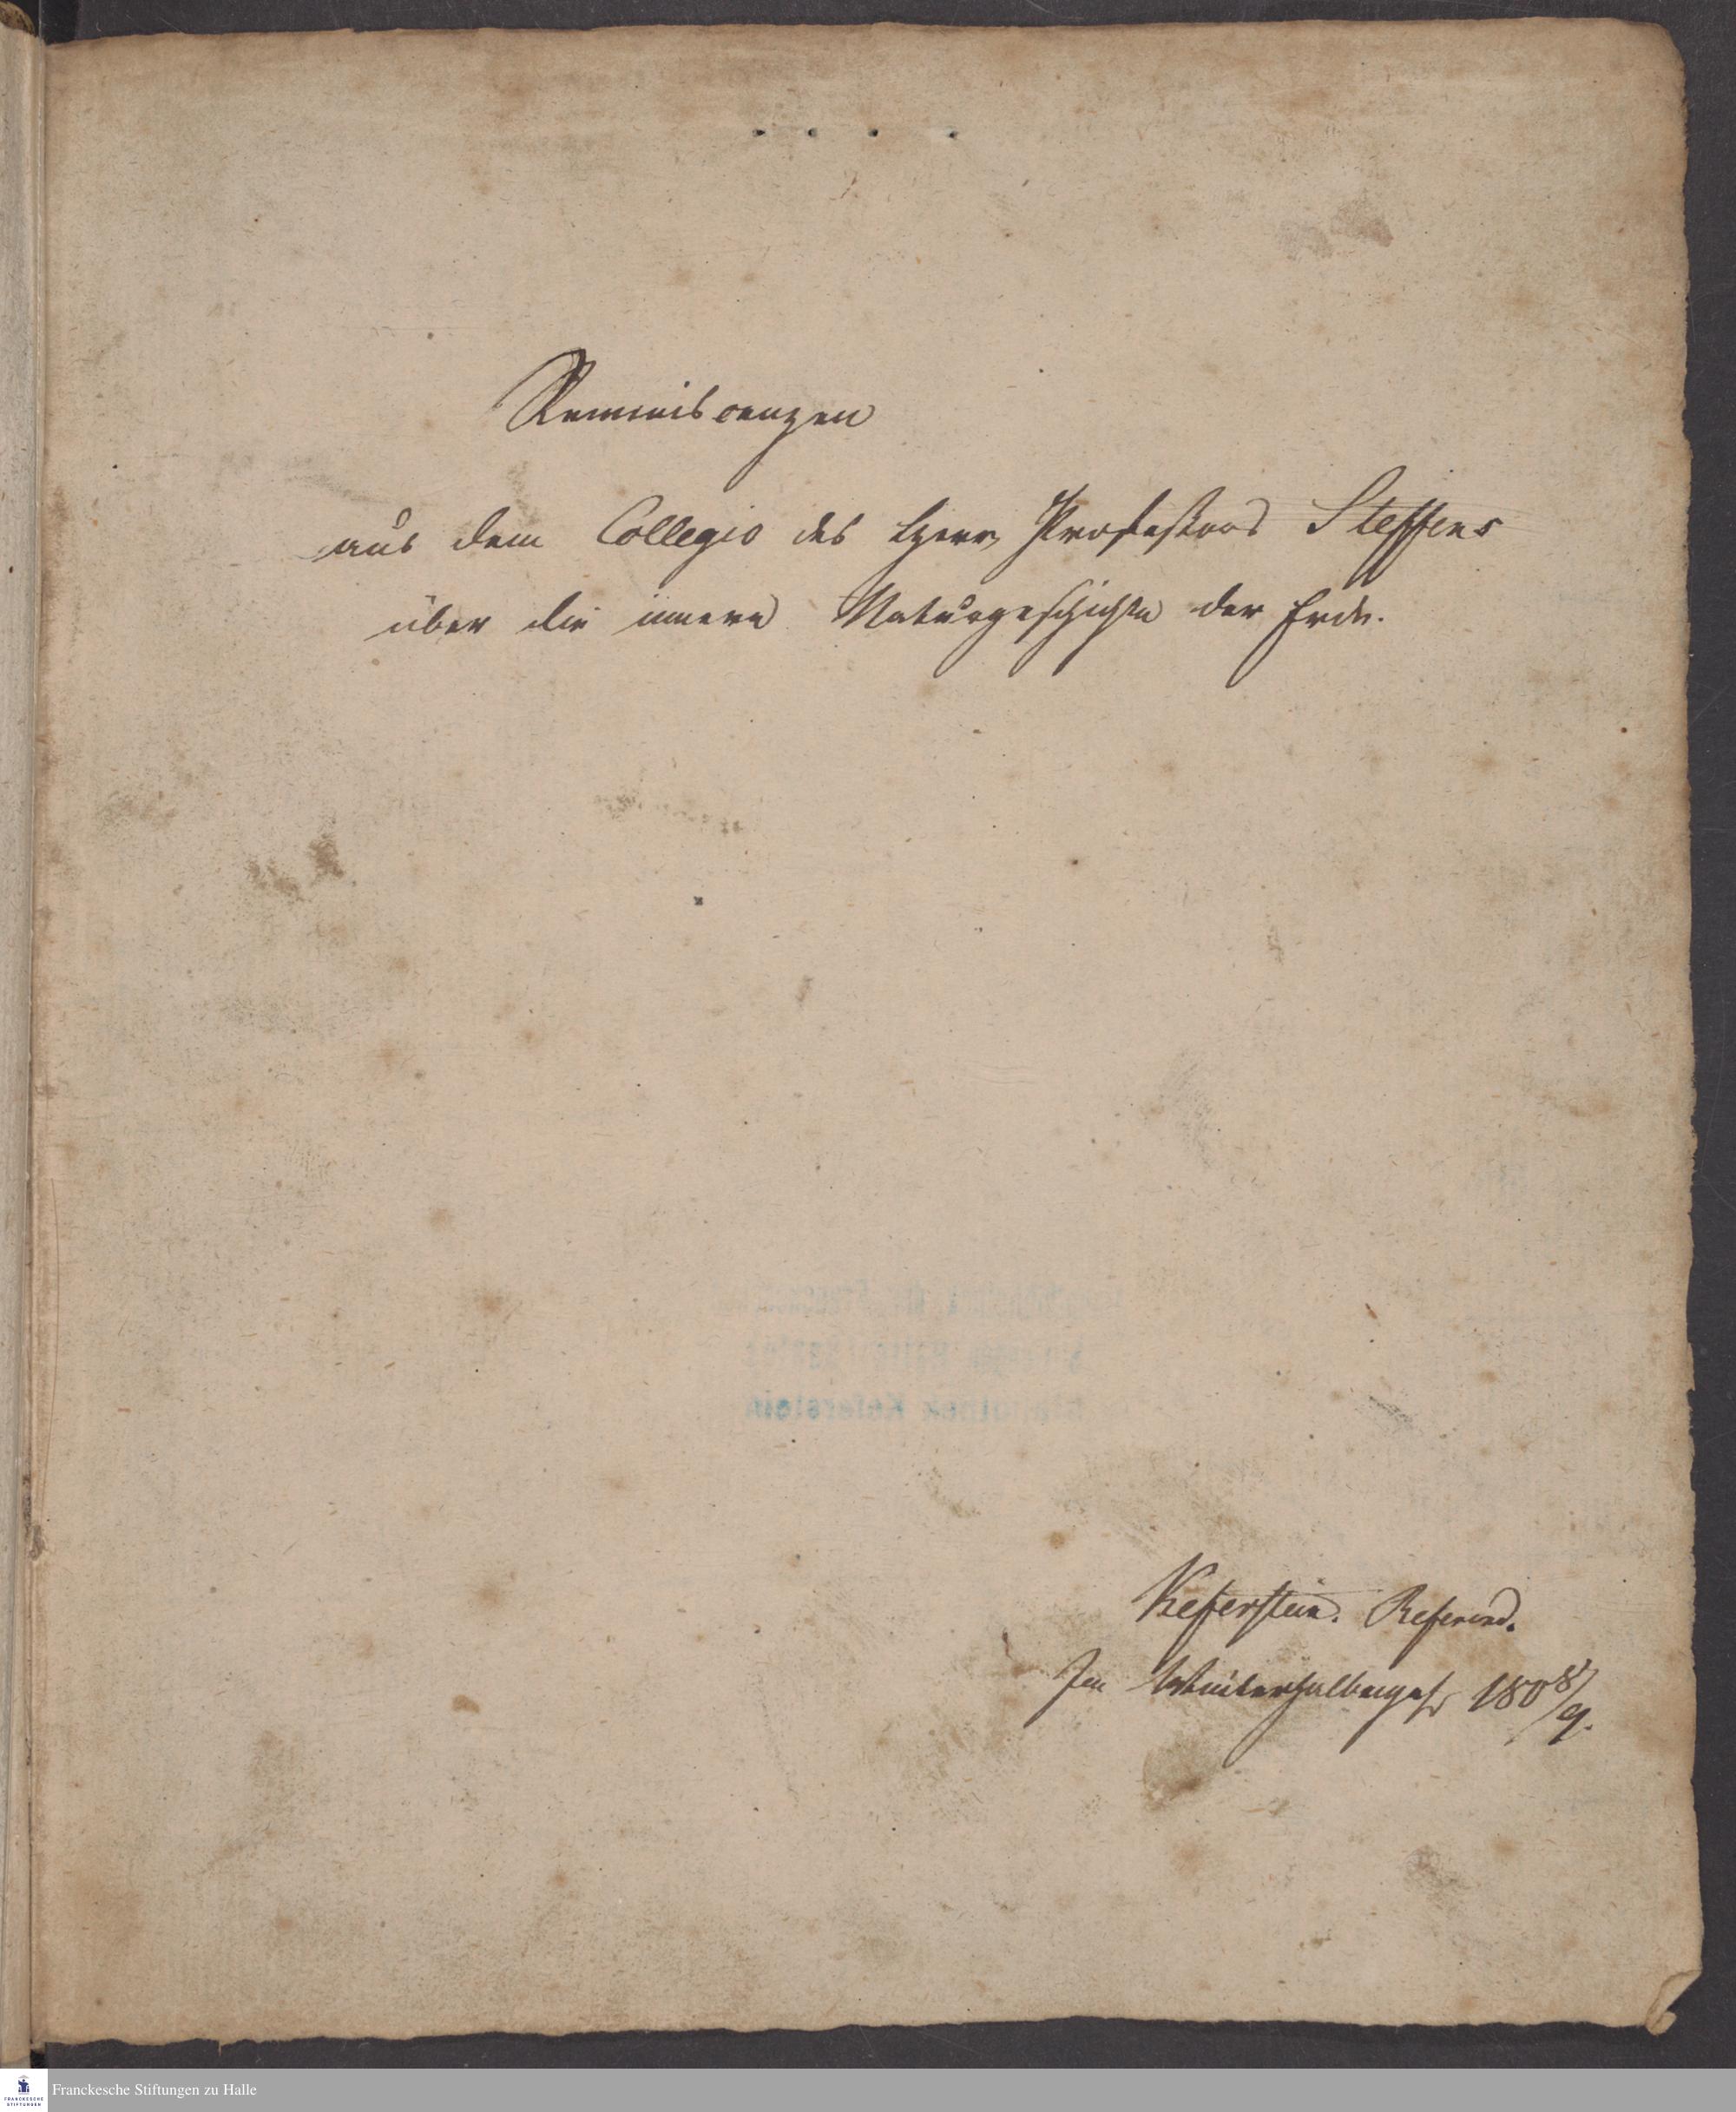 Reminiscenzen
aus dem Collegio des Herrn Professors Steffens
über die innere Naturgeschichte der Erde.
Bibliothek Keferstein
Keferstein. Referend.
Im Winterhalbenjahr 1808/9.
Franckesche Stiftungen zu Halle
FRANCKESCHE
STIFTUNGEN